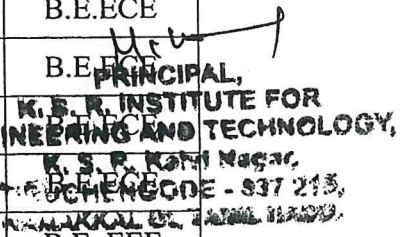 B.E.ECE
B.E.ECE
PRINCIPAL,
K. S. R. INSTITUTE FOR
B.E.ECE
INEERING AND TECHNOLOGY,
K. S. R. Kalvi Nagar,
B.E.ECE
TIRUCHENGODE - 637 215,
NAMAKKAL Dt. TAMIL NADU.
B.E. EEE